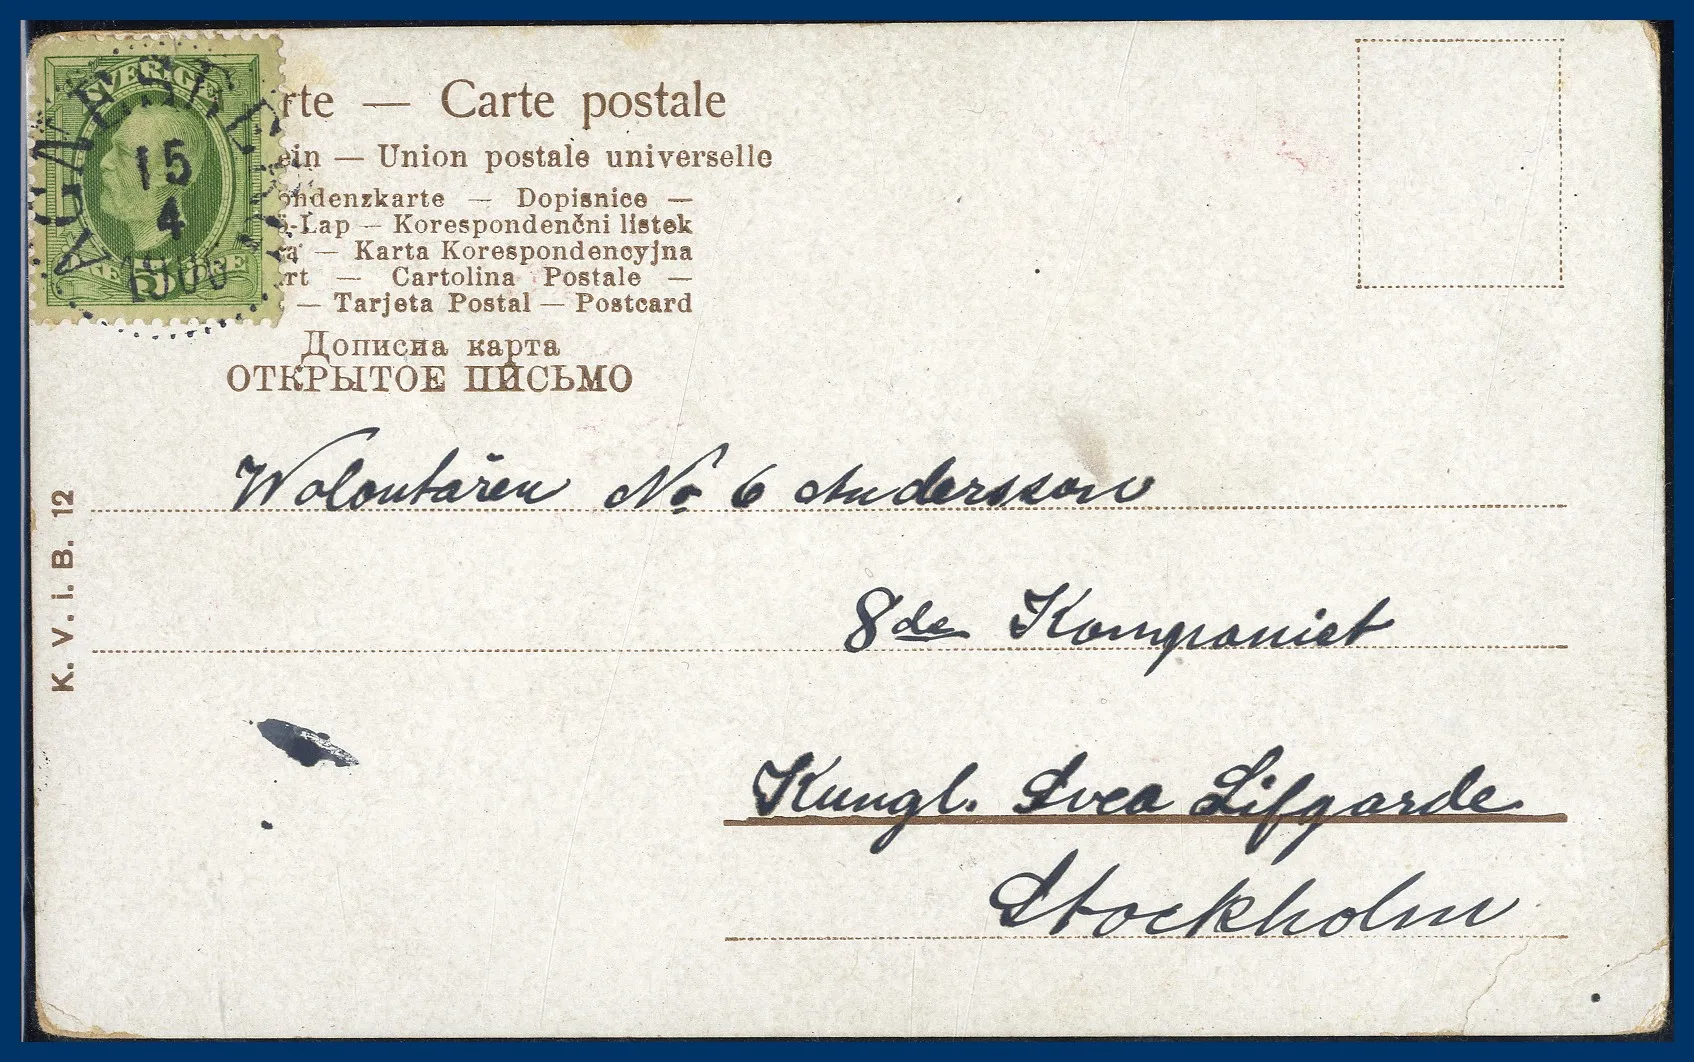 SVERIGE
15
4
rte — Carte postale
ein — Union postale universelle
ondenzkarte — Dopisnice —
-Lap — Korespondenčni listek
— Karta Korespondencyjna
rt — Cartolina Postale —
— Tarjeta Postal — Postcard
Дописна карта
ОТКРЫТОЕ ПИСЬМО
K. V. i. B. 12
Wolontären No 6 Andersson
8de Kompaniet
Kungl. Svea Lifgarde
Stockholm